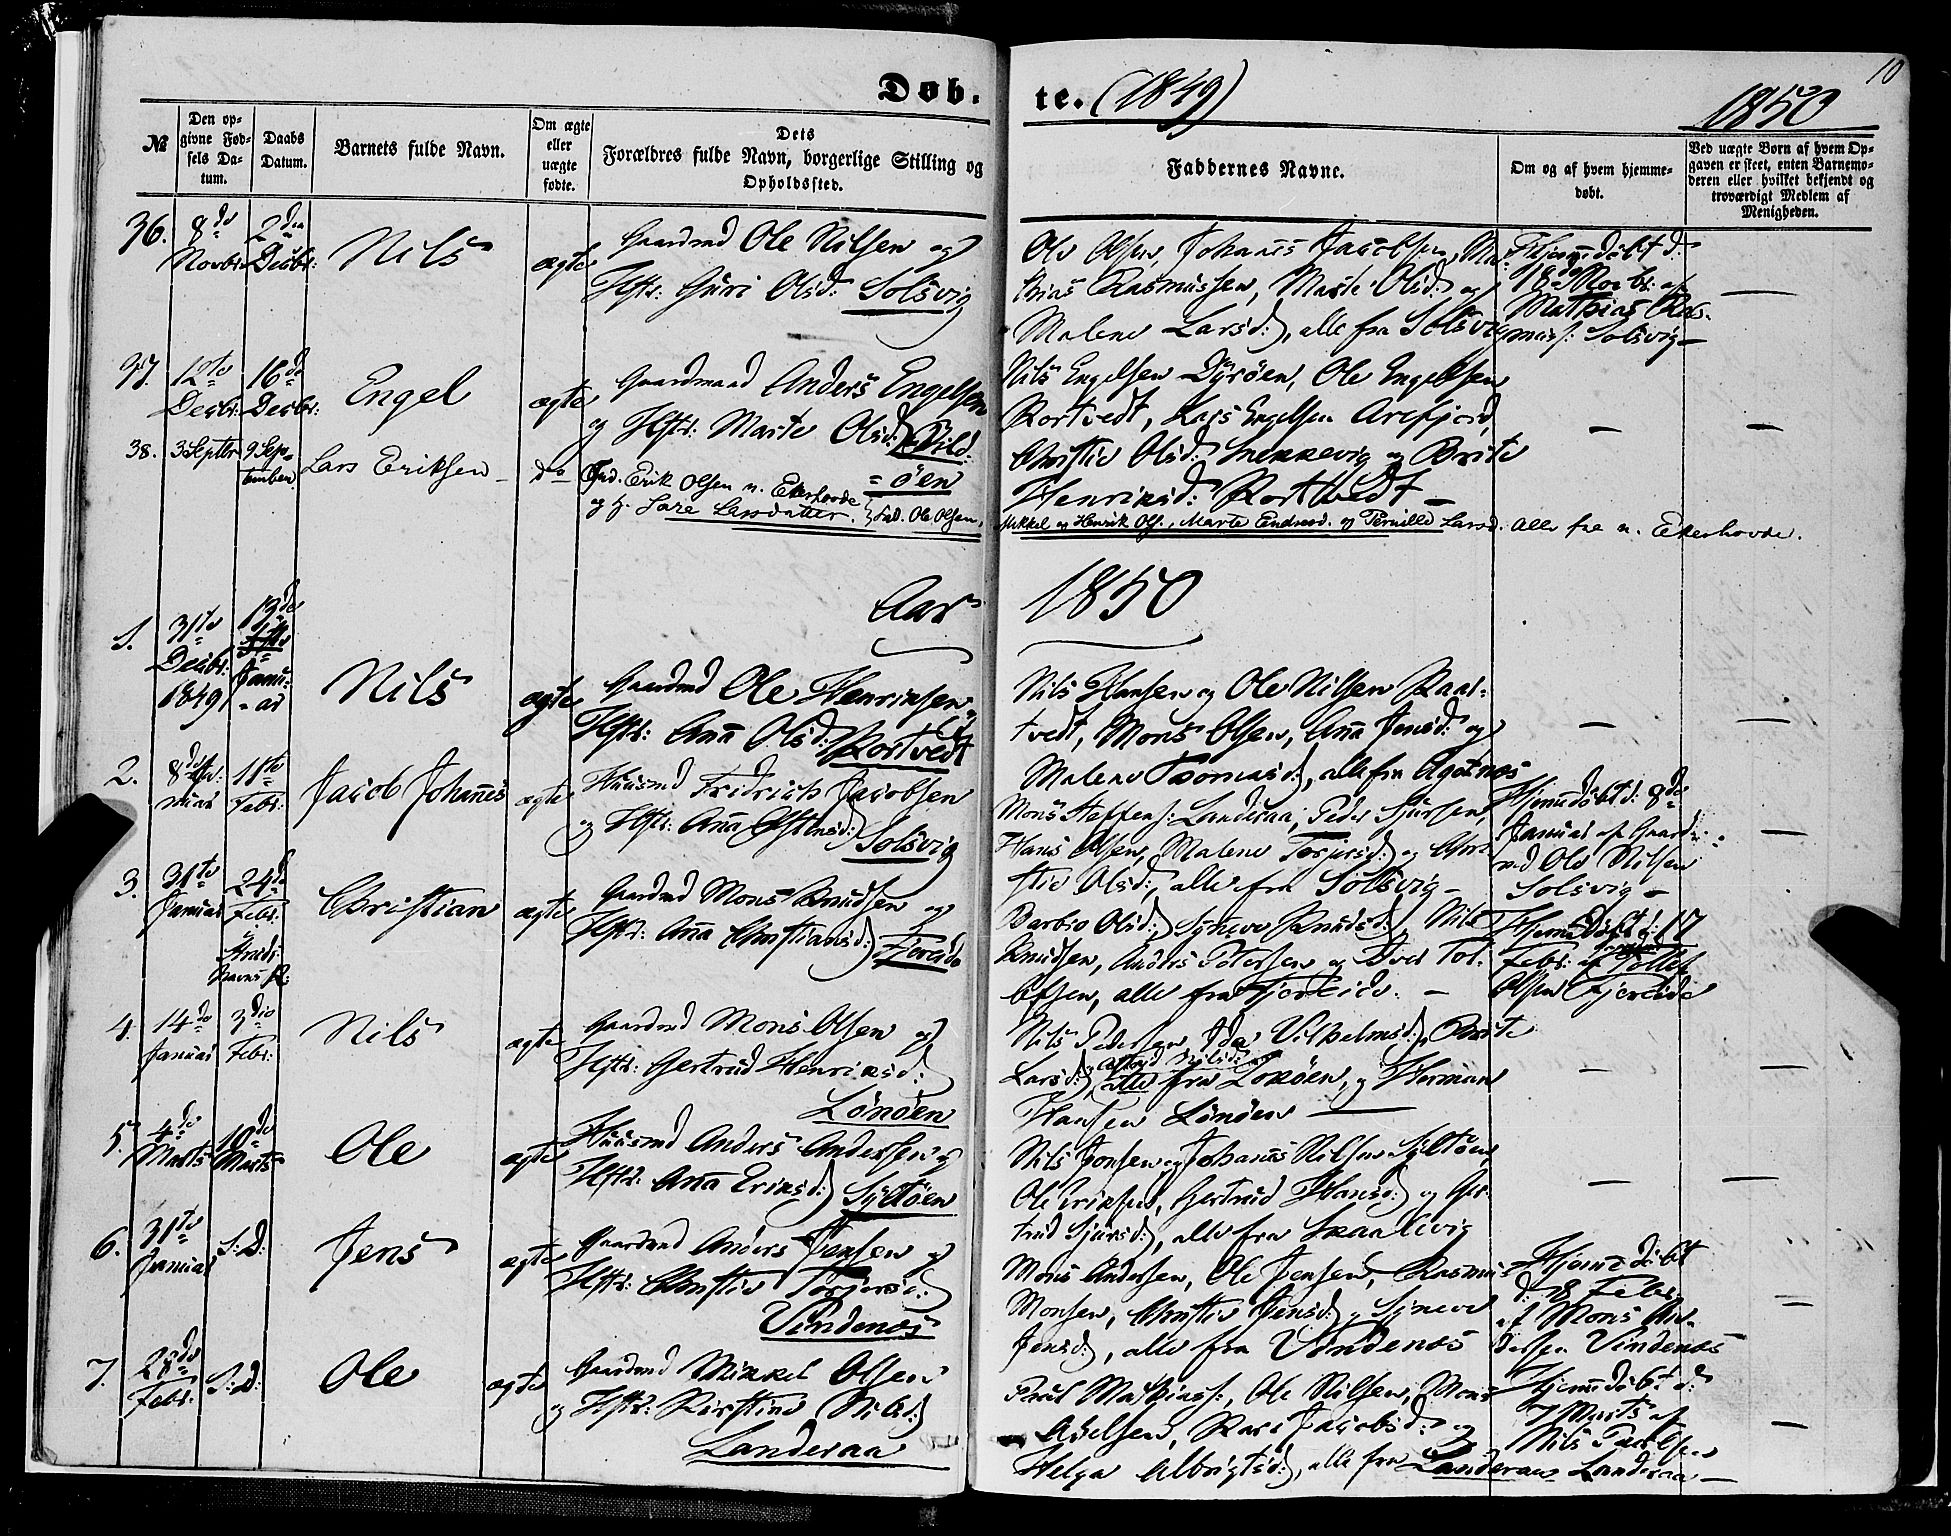 Døb-
te. (1849)
1850
10
№
Den op-
givne Fød-
sels Da-
tum.
Daabs
Datum.
Barnets fulde Navn.
Om ægte
eller
uægte
fødte.
Dets
Forældres fulde Navn, borgerlige Stilling og
Opholdssted.
Faddernes Navne.
Om og af hvem hjemme-
døbt.
Ved uægte Børn af hvem Op-
gaven er skeet, enten Barnemo-
deren eller hvilket bekjendt og
troværdigt Medlem af
Menigheden.
36.
8de
Novbr:
2den
Decbr:
Nils
ægte
Gaardmd Ole Nilsen og
Hstr: Guri Olsd: Solsvig
Ole Olsen, Johanes Jacobsen, Ma-
thias Rasmussen, Marte Olsd: og
Malene Larsd:, alle fra Solsvig
Hjemedöbt d:
18de Novbr. af
Mathias Ras-
muss: Solsvig —
37.
12te
Decbr:
16de
Decbr:
Engel
ægte
Gaardmand Anders Engelsen
og Hstr: Marte Olsd: Bild-
= öen
Nils Engelsen Dyröen, Ole Engelsen
Kortvedt, Lars Engelsen Arefjord,
Christie Olsd: Snekkevig og Brite
Henriksd: Kortvedt —
38.
3 Septbr
9 Sep-
tember
Lars Eriksen
do
Erik Olsen n. Ekerhovde
og h. Sara Larsdatter. Ole Olsen,
Mikkel og Henrik Ols., Marte Endresd. og Pernille Larsd. alle fra n. Ekerhovde.
Aar 1850
1.
31te
Decbr:
1849
13de
Janu-
ar
Nils
ægte
Gaardmd Ole Henriksen og
Hstr: Ana Olsd: Kortvedt
Nils Hansen og Ole Nilsen Kaar-
tvedt, Mons Olsen, Ana Jensd: og
Malene Thomasd:, alle fra Agotnæs
2.
8de
nuar
18te
Febr:
Jacob Johanes
ægte
Huusmd Fridrich Jacobsen
og Hstr: Ana Ostensd: Solsvig
Mons Steffens: Landeraa, Peder Sjursen,
Hans Olsen, Malene Torjersd: og Chri-
stie Olsd:, alle fra Solsvig —
Hjemedöbt d: 8de
Januar af Gaard-
md Ole Nilsen
Solsvig —
3.
31te
Januar
24de
Febr:
Christian
ægte
Gaardmd Mons Knudsen og
Hstr: Ana Christiansd: Fjereide
Barbro Olsd:, Synneve Knudsd:, Nils
Knudsen, Anders Petersen og Iver Tol-
lefsen, alle fra Fjereide. —
Hjemedöbt d: 17
Febr: af Tollef
Olsen Fjereide
4.
14de
Januar
3die
Febr:
Nils
ægte
Gaardmd Mons Olsen og
Hstr: Gertrud Henriksd:
Lönöen
Nils Pedersen, Ida Vilhelmsd:, Brite
Larsd:, alle fra Lönöen, og Herman
Hansen Lönöen
5.
4de
Marts
10de
Marts
Ole
ægte
Huusmd Anders Andersen og
Hstr: Ana Eriksd: Syltöen
Nils Jonsen og Johanes Nilsen Syltöen,
Ole Eriksen, Gertrud Hansd: og Ger-
trud Sjursd:, alle fra Skaalevig
6.
31te
Januar
S: D:
Jens
ægte
Gaardmd Anders Jensen og
Hstr: Christie Torjersd:
Vindenæs
Mons Andersen, Ole Jensen, Rasmus
Monsen, Christie Jensd: og Syneve
Jensd:, alle fra Vindenæs
Hjemedöbt
d: 18 Febr.
af Mons An-
dersen Vindenæs
7.
28de
Febr:
S: D:
Ole
ægte
Gaardmd Mikkel Olsen
og Hstr: Kirstine Nilsd:
Landeraa
Poul Mathiass:, Ole Nilsen, Mons
Abelsen, Kari Jacobsd: og
Helga Albrigtsd:, alle fra Landeraa
Hjemedöbt d:
7 Marts af
Nils Poulsen
Landeraa —